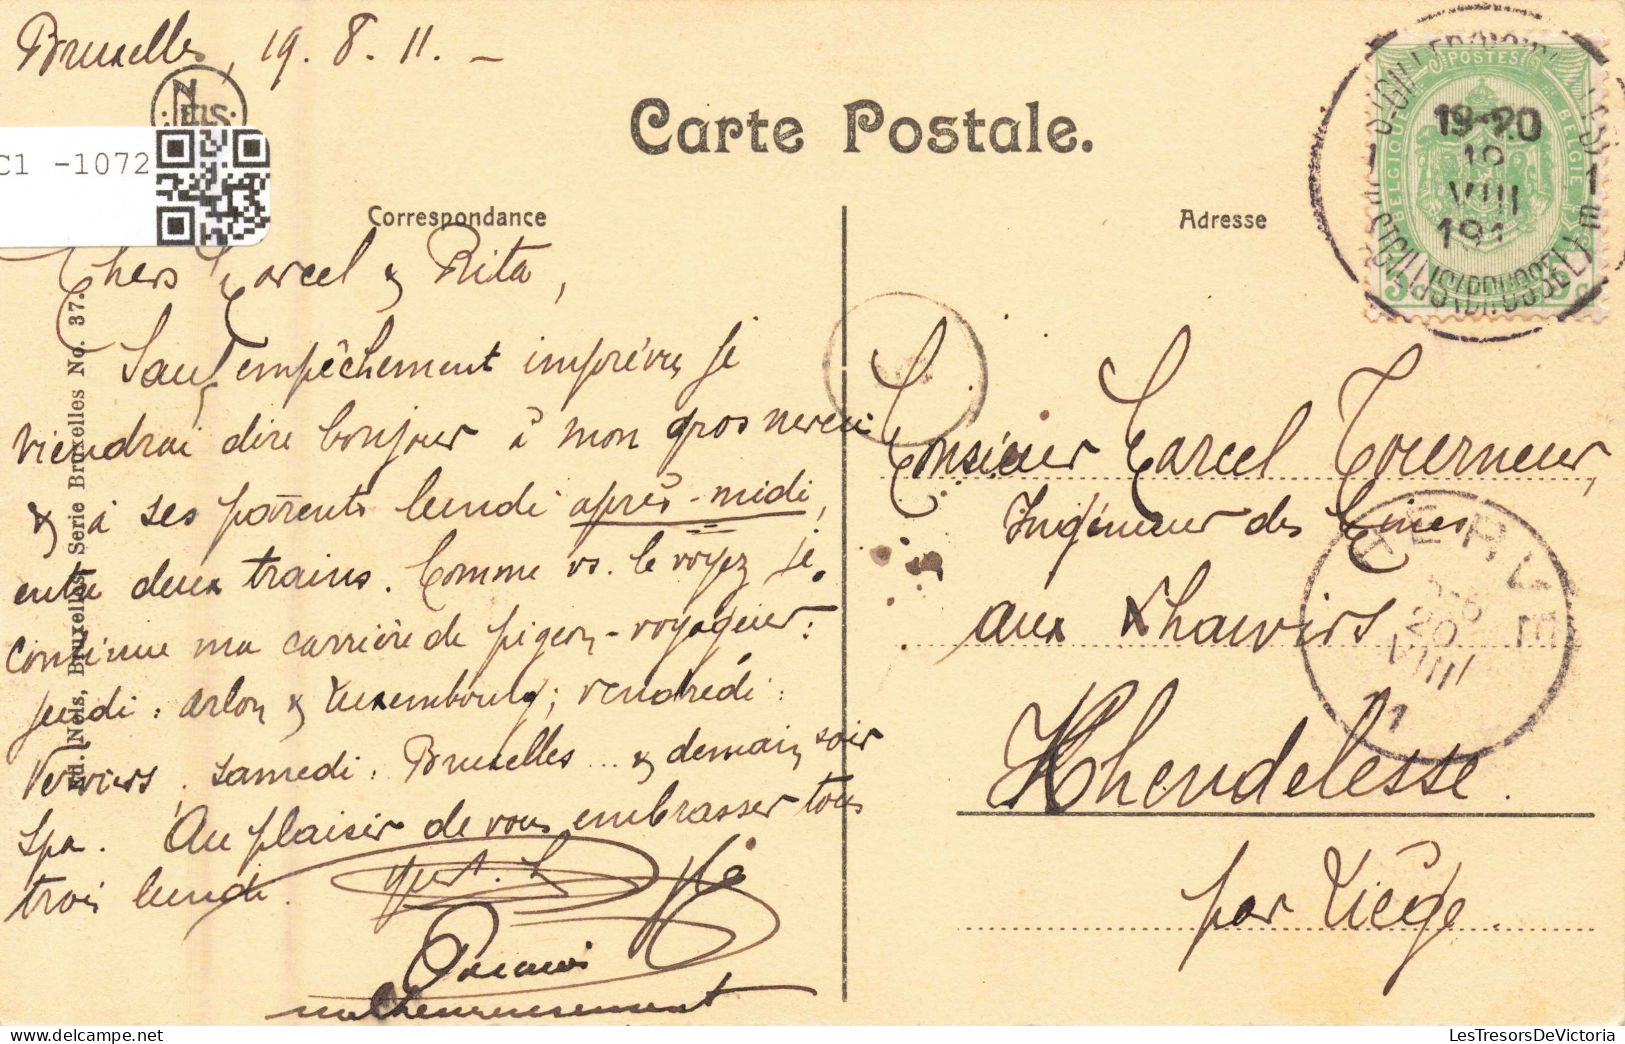 Bruxelles, 19. 8. 11. -
NELS
C1 -1072
Carte Postale.
Correspondance
Adresse
Chers Marcel & Rita,
Sauf empêchement imprévu, je
viendrai dire bonjour à mon gros neveu
& à ses parents lundi après-midi,
entre deux trains. Comme vs. le voyez je
continue ma carrière de pigeon-voyageur:
jeudi: Arlon & Luxembourg; vendredi:
Verviers, samedi: Bruxelles... & demain soir
Spa. Au plaisir de vous embrasser tous
trois lundi.
malheureusement
Ed. Nels, Bruxelles. Serie Bruxelles No. 37.
POSTES
BELGIQUE
BELGIE
19-20
VIII
191
Monsieur Marcel Tourneur,
Ingénieur des Mines
aux Xhawirs
Xhendelesse.
par Liège.
HERVE
20
VIII
LesTresorsDeVictoria.com